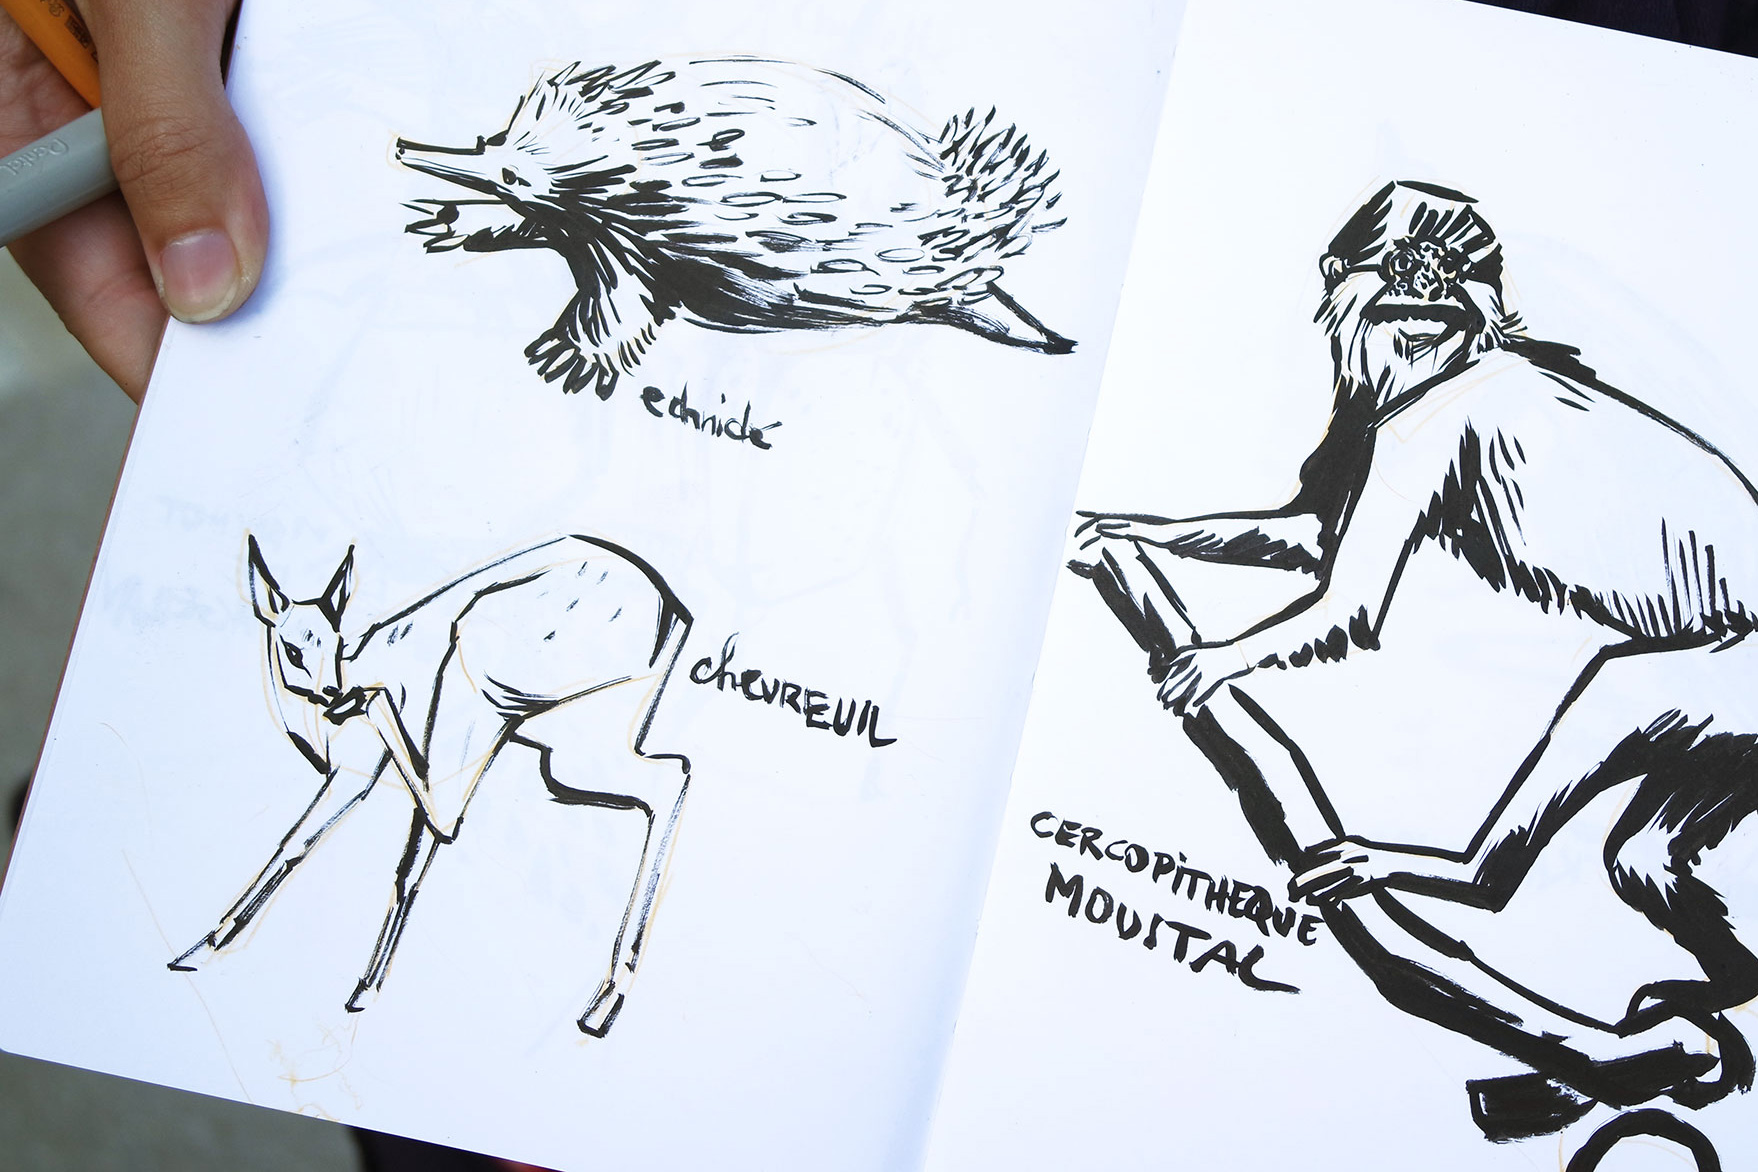 echnidé
chevREUIL
CERCOPiTHEQUE
MOUSTAC
Pentel